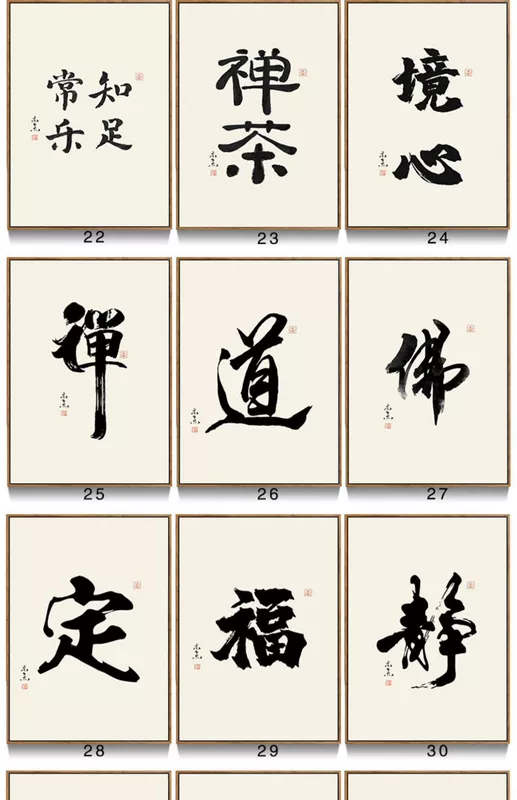 知足
常乐
22
禅
茶
23
境
心
24
禪
25
道
26
佛
27
定
28
福
29
静
30